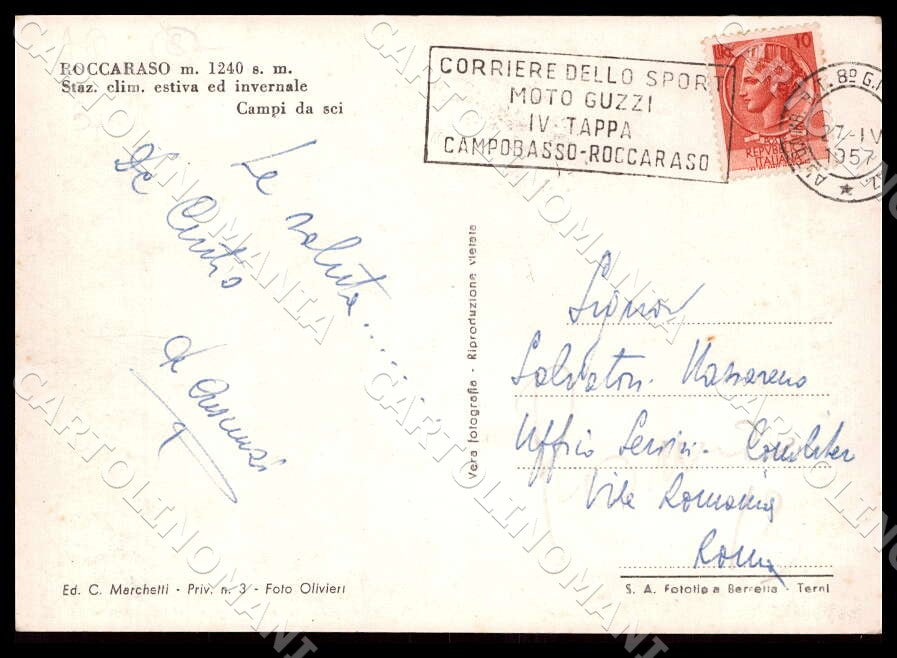 ROCCARASO m. 1240 s. m.
Staz. clim. estiva ed invernale
Campi da sci
CORRIERE DELLO SPORT
MOTO GUZZI
IV TAPPA
CAMPOBASSO-ROCCARASO
10
REPUBBLICA
ITALIANA
8º G.I
27-IV
1957
Le saluta.....
De Cintio
Vera fotografia - Riproduzione vietata
Signor
Salvatori Nazzareno
Uffico Servizi
Viale Romania
Roma
Ed. C. Marchetti - Priv. n. 3 - Foto Olivieri
S. A. Fototipia Berretta - Terni
CARTOLINOMANIA